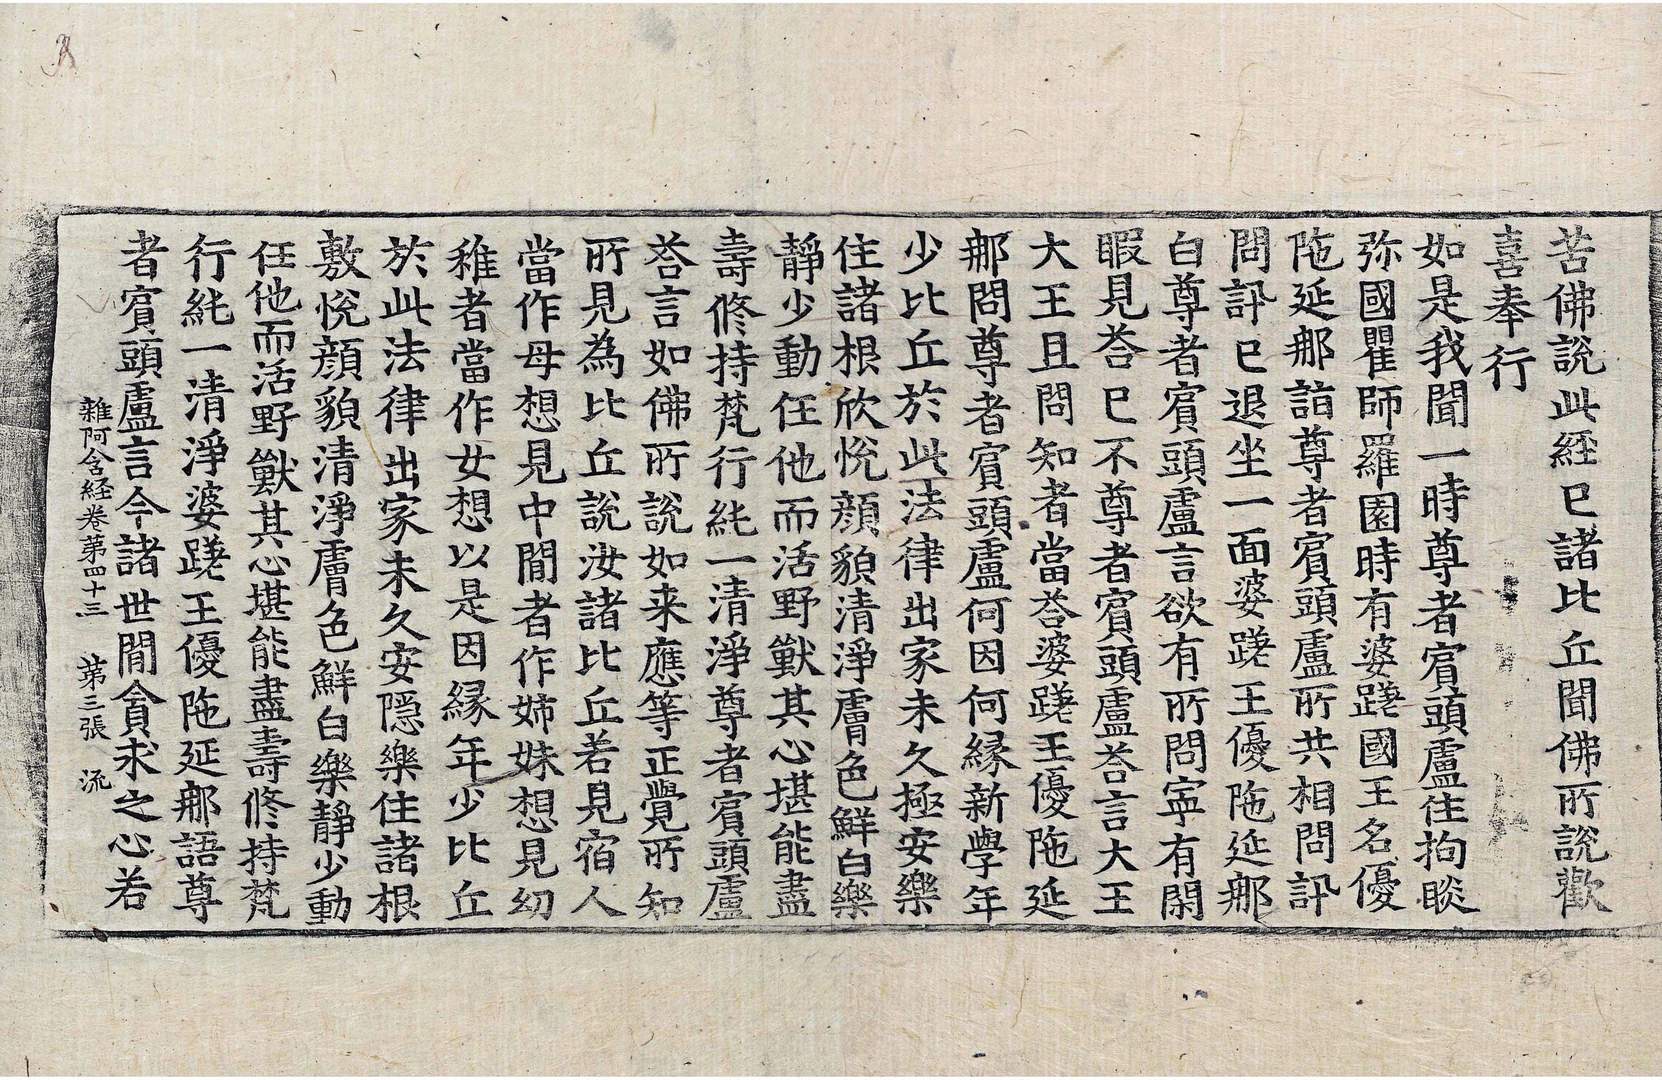 苦佛說此経已諸比丘聞佛所說歡
喜奉行
如是我聞一時尊者賓頭盧住拘睒
弥國瞿師羅園時有婆蹉國王名優
陁延那詣尊者賓頭盧所共相問訊
問訊已退坐一面婆蹉王優陁延那
白尊者賓頭盧言欲有所問寜有閑
暇見荅已不尊者賓頭盧荅言大王
大王且問知者當荅婆蹉王優陁延
那問尊者賓頭盧何因何縁新學年
少比丘於此法律出家未久極安樂
住諸根欣悅顔貌清淨膚色鮮白樂
靜少動任他而活野獸其心堪能盡
壽修持梵行純一清淨尊者賓頭盧
荅言如佛所說如来應等正覺所知
所見為比丘說汝諸比丘若見宿人
當作母想見中間者作姉妹想見幼
稚者當作女想以是因縁年少比丘
於此法律出家未久安隠樂住諸根
敷悅顔貌清淨膚色鮮白樂靜少動
任他而活野獸其心堪能盡壽修持梵
行純一清淨婆蹉王優陁延那語尊
者賓頭盧言今諸世間貪求之心若
雜阿含経卷苐四十三　苐三張　流